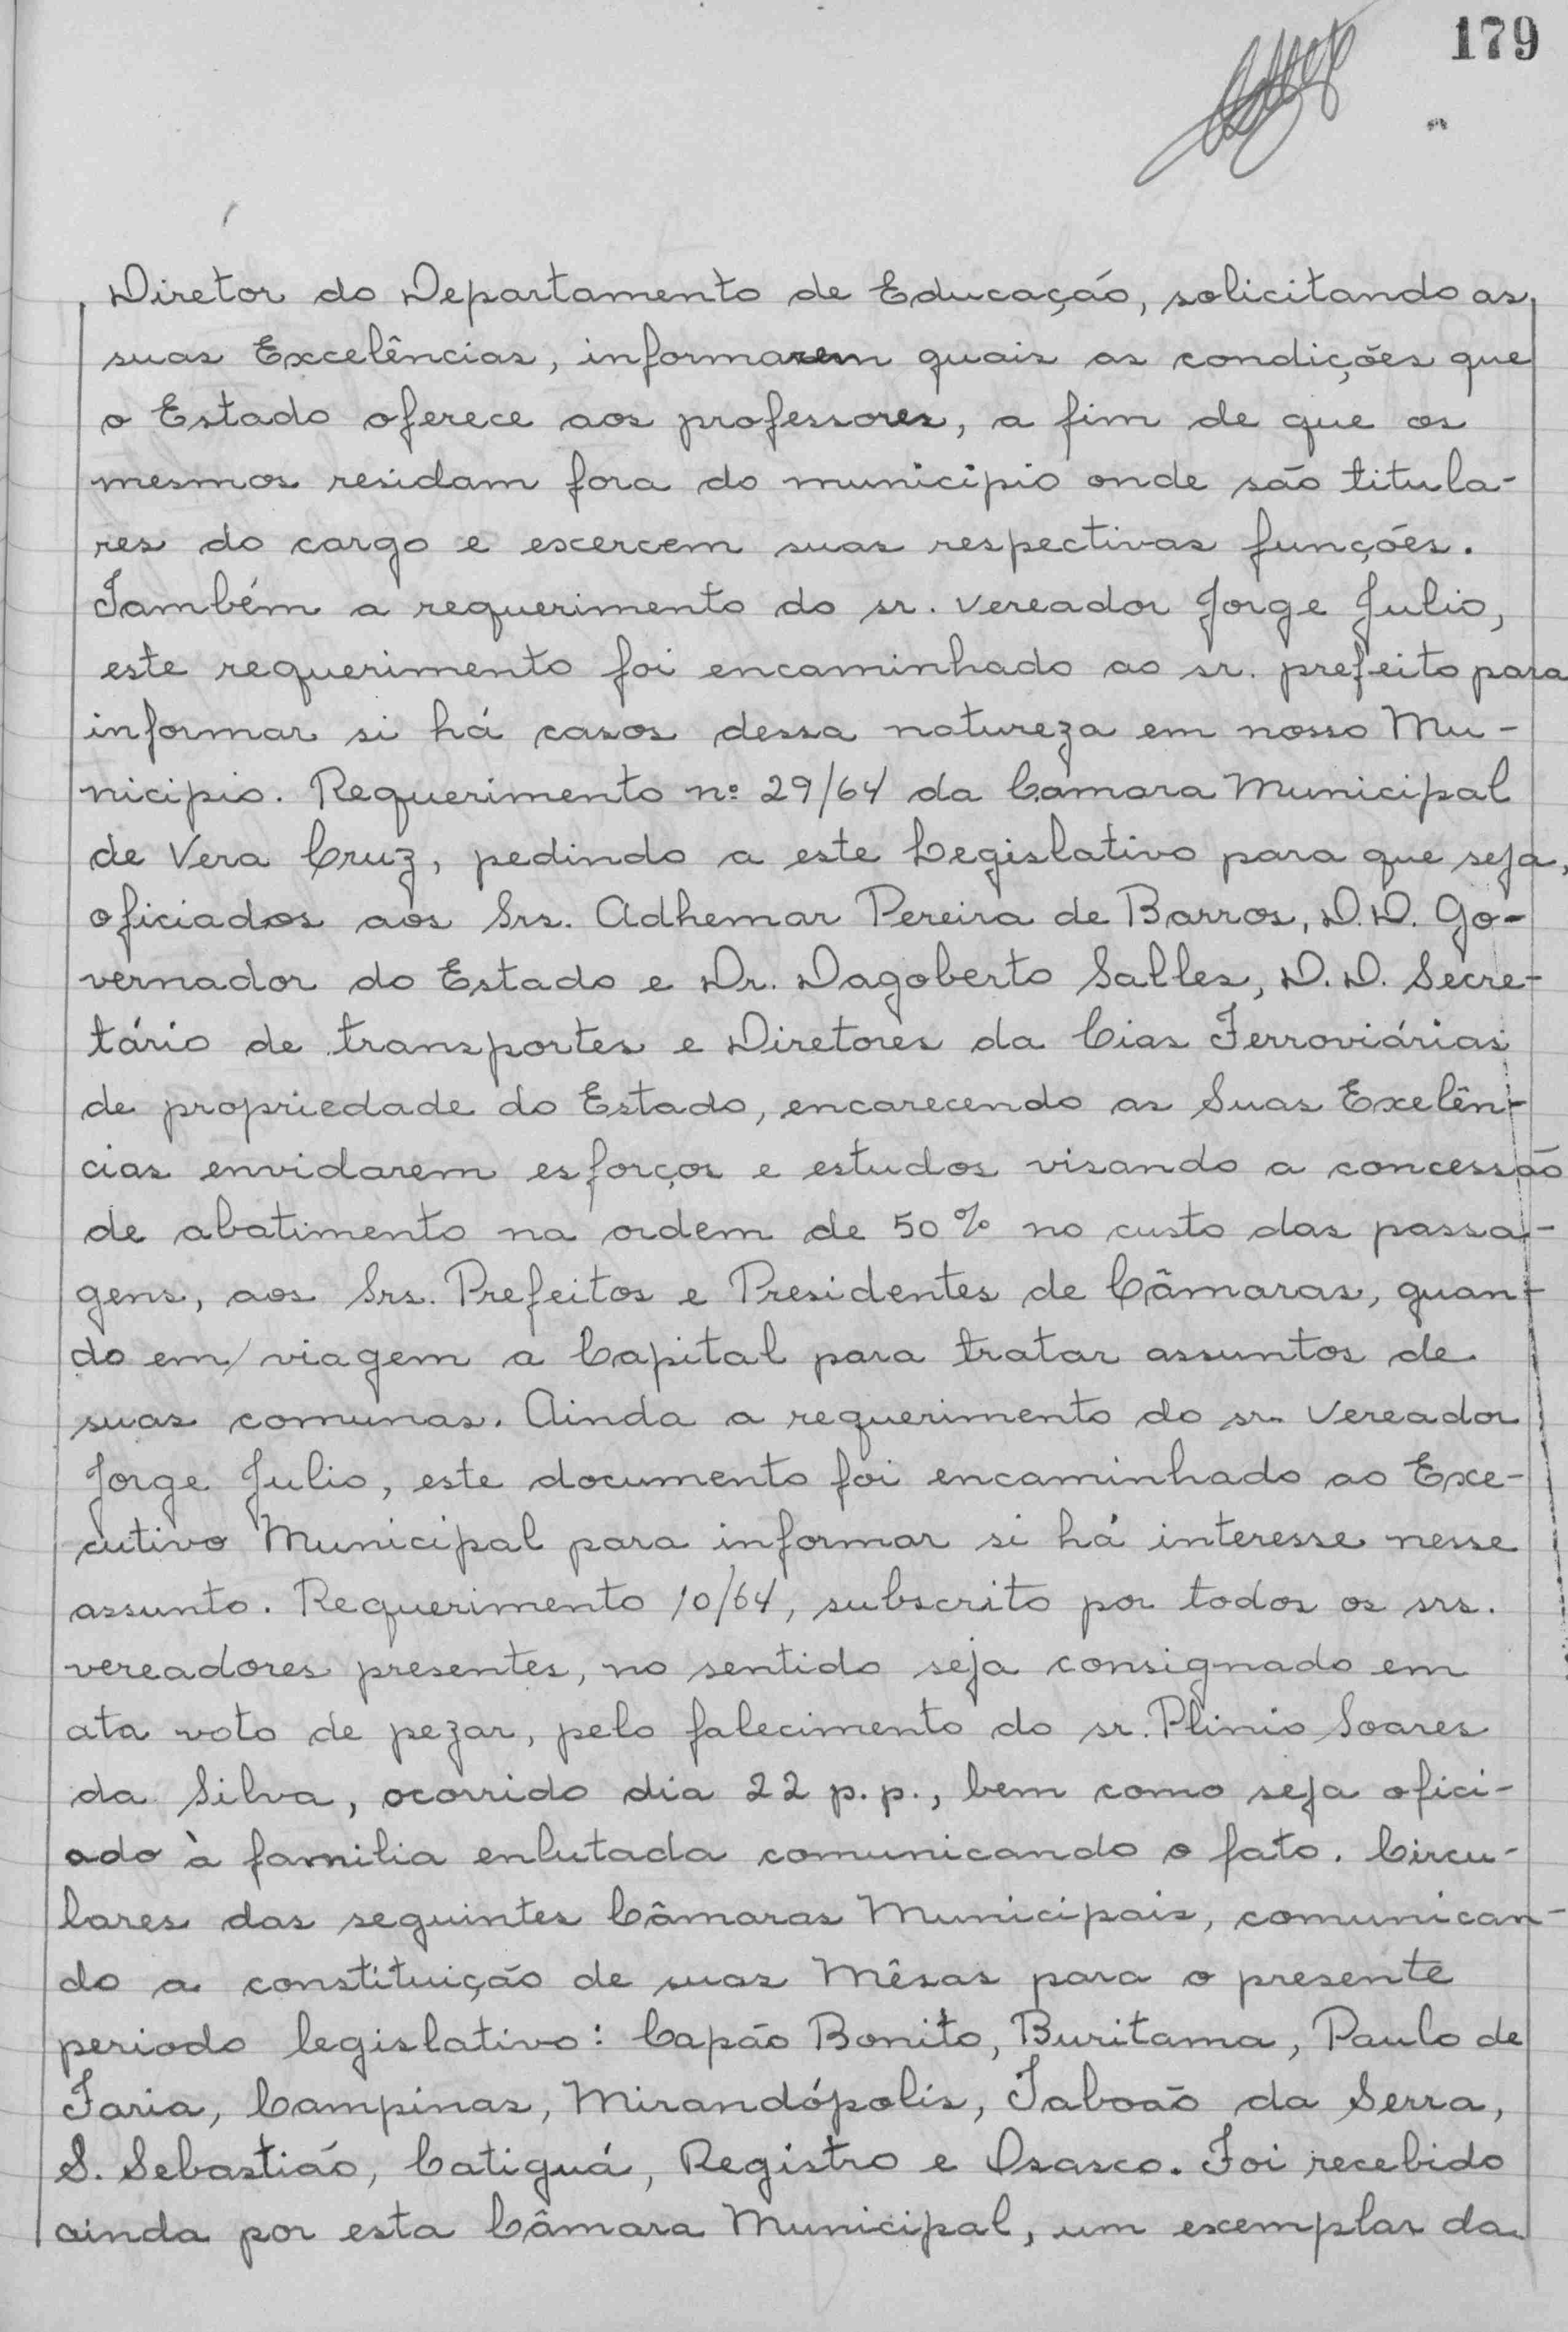 179
Diretor do Departamento de Educação, solicitando as
suas Excelências, informarem quais as condições que
o Estado oferece aos professores, a fim de que os
mesmos residam fora do municipio onde são titula-
res do cargo e excercem suas respectivas funções.
Também a requerimento do sr. vereador Jorge Julio,
este requerimento foi encaminhado ao sr. prefeito para
informar si há casos dessa natureza em nosso Mu-
nicipio. Requerimento nº 29/64 da Camara Municipal
de Vera Cruz, pedindo a este Legislativo para que seja,
oficiados aos Srs. Adhemar Pereira de Barros, D.D. Go-
vernador do Estado e Dr. Dagoberto Salles, D.D. Secre-
tário de transportes e Diretores da Cias Ferroviárias
de propriedade do Estado, encarecendo as Suas Exelên-
cias envidarem esforços e estudos visando a concessão
de abatimento na ordem de 50% no custo das passa-
gens, aos Srs. Prefeitos e Presidentes de Câmaras, quan-
do em viagem a Capital para tratar assuntos de
suas comunas. Ainda a requerimento do sr. Vereador
Jorge Julio, este documento foi encaminhado ao Exe-
cutivo Municipal para informar si há interesse nesse
assunto. Requerimento 10/64, subscrito por todos os srs.
vereadores presentes, no sentido seja consignado em
ata voto de pezar, pelo falecimento do sr. Plinio Soares
da Silva, ocorrido dia 22 p.p., bem como seja ofici-
ado à familia enlutada comunicando o fato. Circu-
lares das seguintes Câmaras Municipais, comunican-
do a constituição de suas Mêsas para o presente
periodo legislativo: Capão Bonito, Buritama, Paulo de
Faria, Campinas, Mirandópolis, Taboão da Serra,
S. Sebastião, Catiguá, Registro e Osasco. Foi recebido
ainda por esta Câmara Municipal, um excemplar da